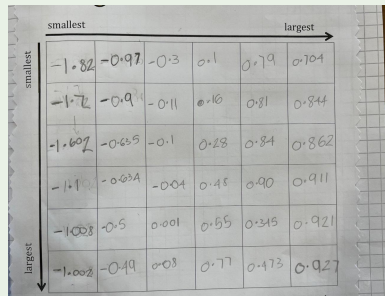 smallest largest
smallest
-1.82 -0.97 -0.3 0.1 0.79 0.704
-1.72 -0.9 -0.11 0.16 0.81 0.844
-1.602 -0.635 -0.1 0.28 0.84 0.862
-1.1 -0.634 -0.04 0.48 0.90 0.911
-1.008 -0.5 0.001 0.55 0.345 0.921
-1.002 -0.49 0.08 0.77 0.473 0.927
largest